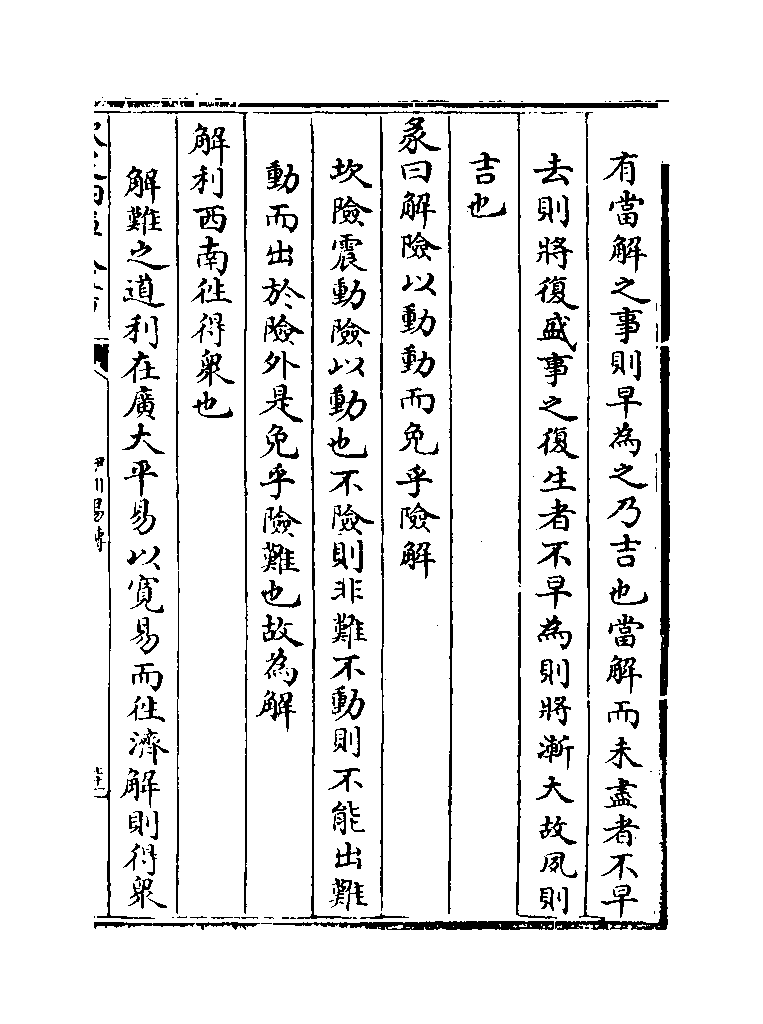 有當解之事則早為之乃吉也當解而未盡者不早
去則將復盛事之復生者不早為則將漸大故夙則
吉也
彖曰解險以動動而免乎險解
坎險震動險以動也不險則非難不動則不能出難
動而出於險外是免乎險難也故為解
解利西南徃得衆也
解難之道利在廣大平易以寛易而徃濟解則得衆
伊川易傳